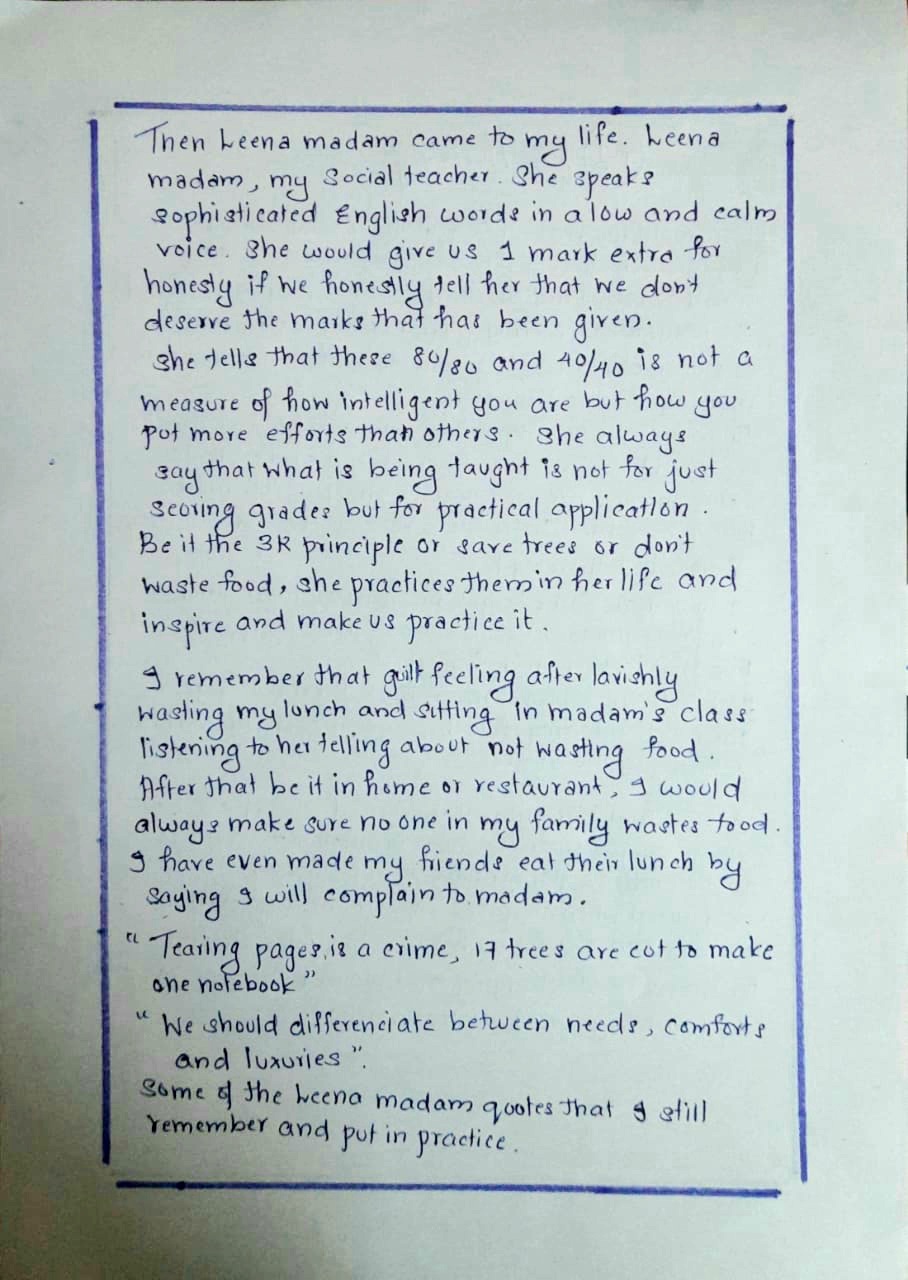 Then Leena madam came to my life. Leena
madam, my Social teacher. She speaks
sophisticated English words in a low and calm
voice. She would give us 1 mark extra for
honesty if we honestly tell her that we don't
deserve the marks that has been given.
She tells that these 80/80 and 40/40 is not a
measure of how intelligent you are but how you
put more efforts than others. She always
say that what is being taught is not for just
scoring grades but for practical application.
Be it the 3R principle or save trees or don't
waste food, she practices them in her life and
inspire and make us practice it.
I remember that guilt feeling after lavishly
wasting my lunch and sitting in madam's class
listening to her telling about not wasting food.
After that be it in home or restaurant, I would
always make sure no one in my family wastes food.
I have even made my friends eat their lunch by
saying I will complain to madam.
"Tearing pages, is a crime, 17 trees are cut to make
one notebook"
"We should differenciate between needs, comforts
and luxuries".
Some of the Leena madam quotes that I still
remember and put in practice.